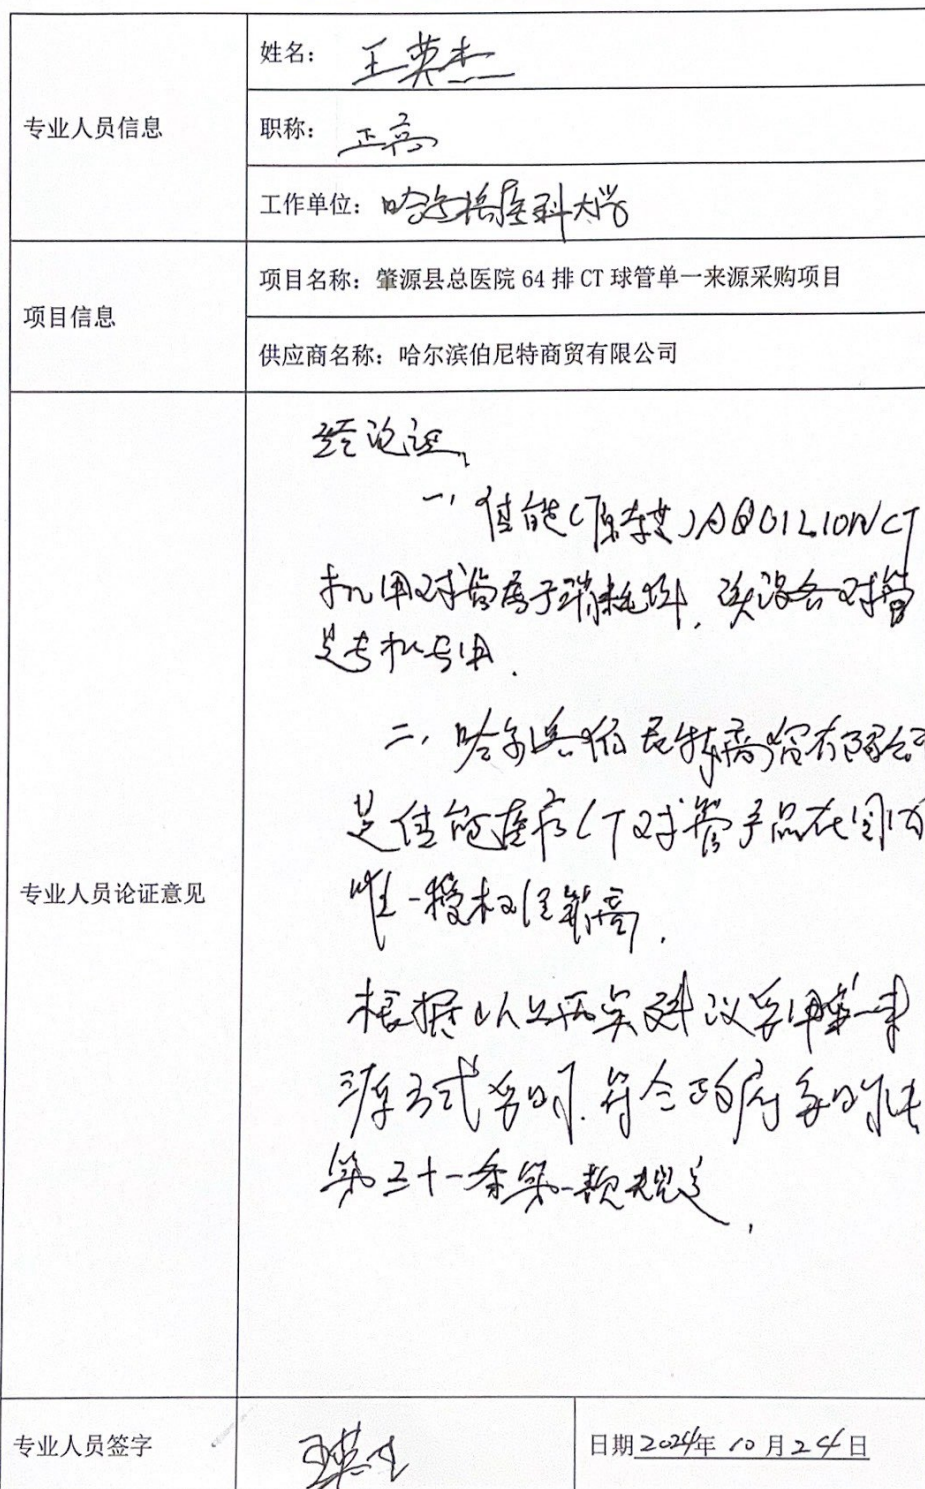 专业人员信息
姓名：王英杰
职称：正高
工作单位：哈尔滨医科大学
项目信息
项目名称：肇源县总医院 64 排 CT 球管单一来源采购项目
供应商名称：哈尔滨伯尼特商贸有限公司
专业人员论证意见
经论证，
一，佳能（原东芝）AQUILION CT
机用球管属于消耗材，该设备球管
是专机专用．
二，哈尔滨伯尼特商贸有限公司
是佳能医疗CT球管产品在国内
唯一授权经销商．
根据以上 建议采用单一来
源方式采购．符合政府采购法
第三十一条第一款规定．
专业人员签字
王英杰
日期 2024年 10 月 24 日